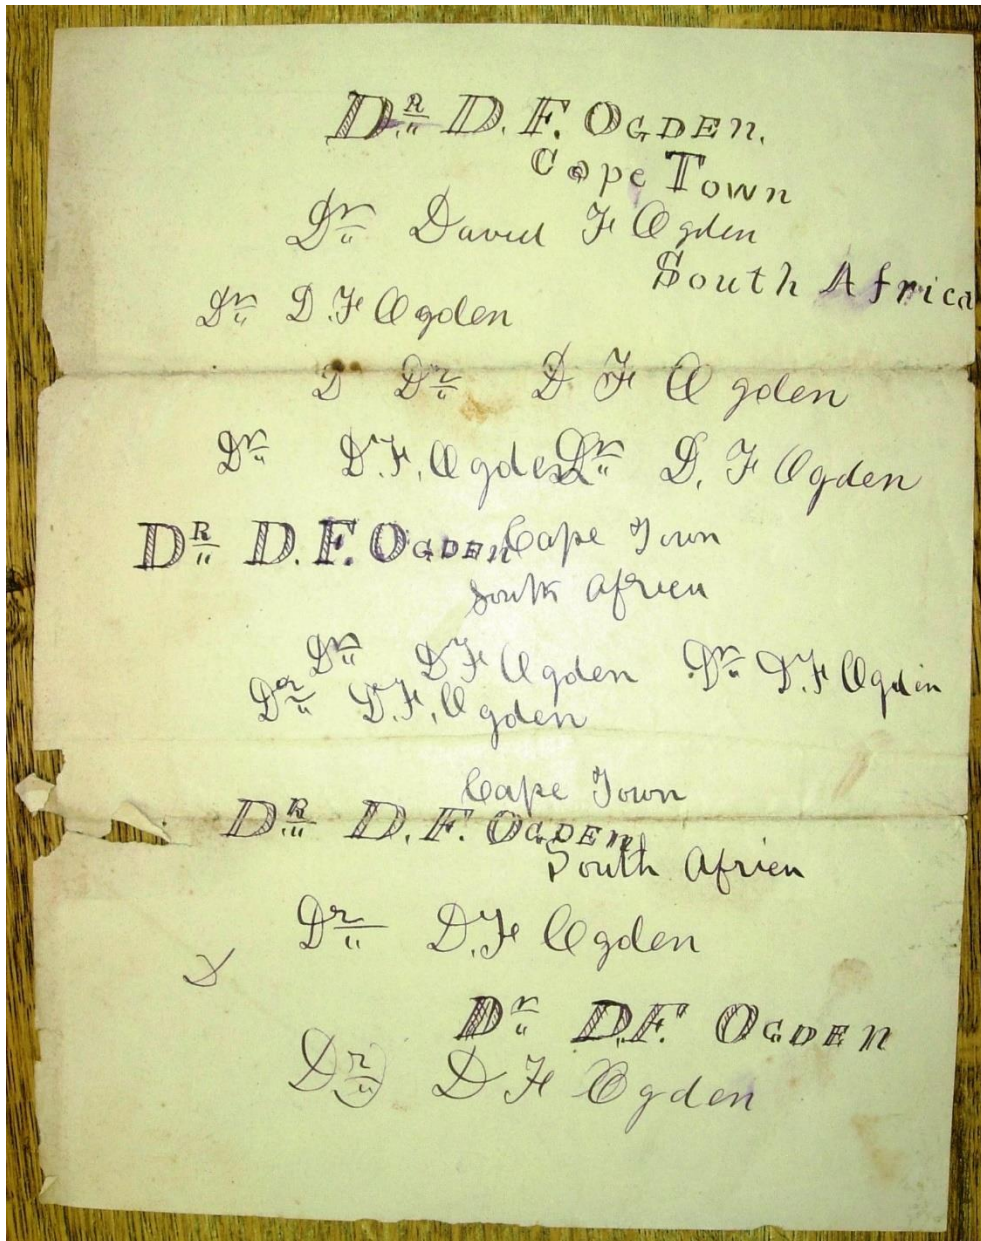 Dr D. F. Ogden.
Cape Town
Dr David F Ogden
South Africa
Dr D. F Ogden
D Dr D F Ogden
Dr D. F. Ogden Dr D. F Ogden
Dr D. F. Ogden Cape Town
South Africa
Dr D F Ogden Dr D. F Ogden
Dr D. F. Ogden
Cape Town
Dr D. F. Ogden
South Africa
Dr D. F Ogden
D
Dr D.F. Ogden
Dr D F Ogden